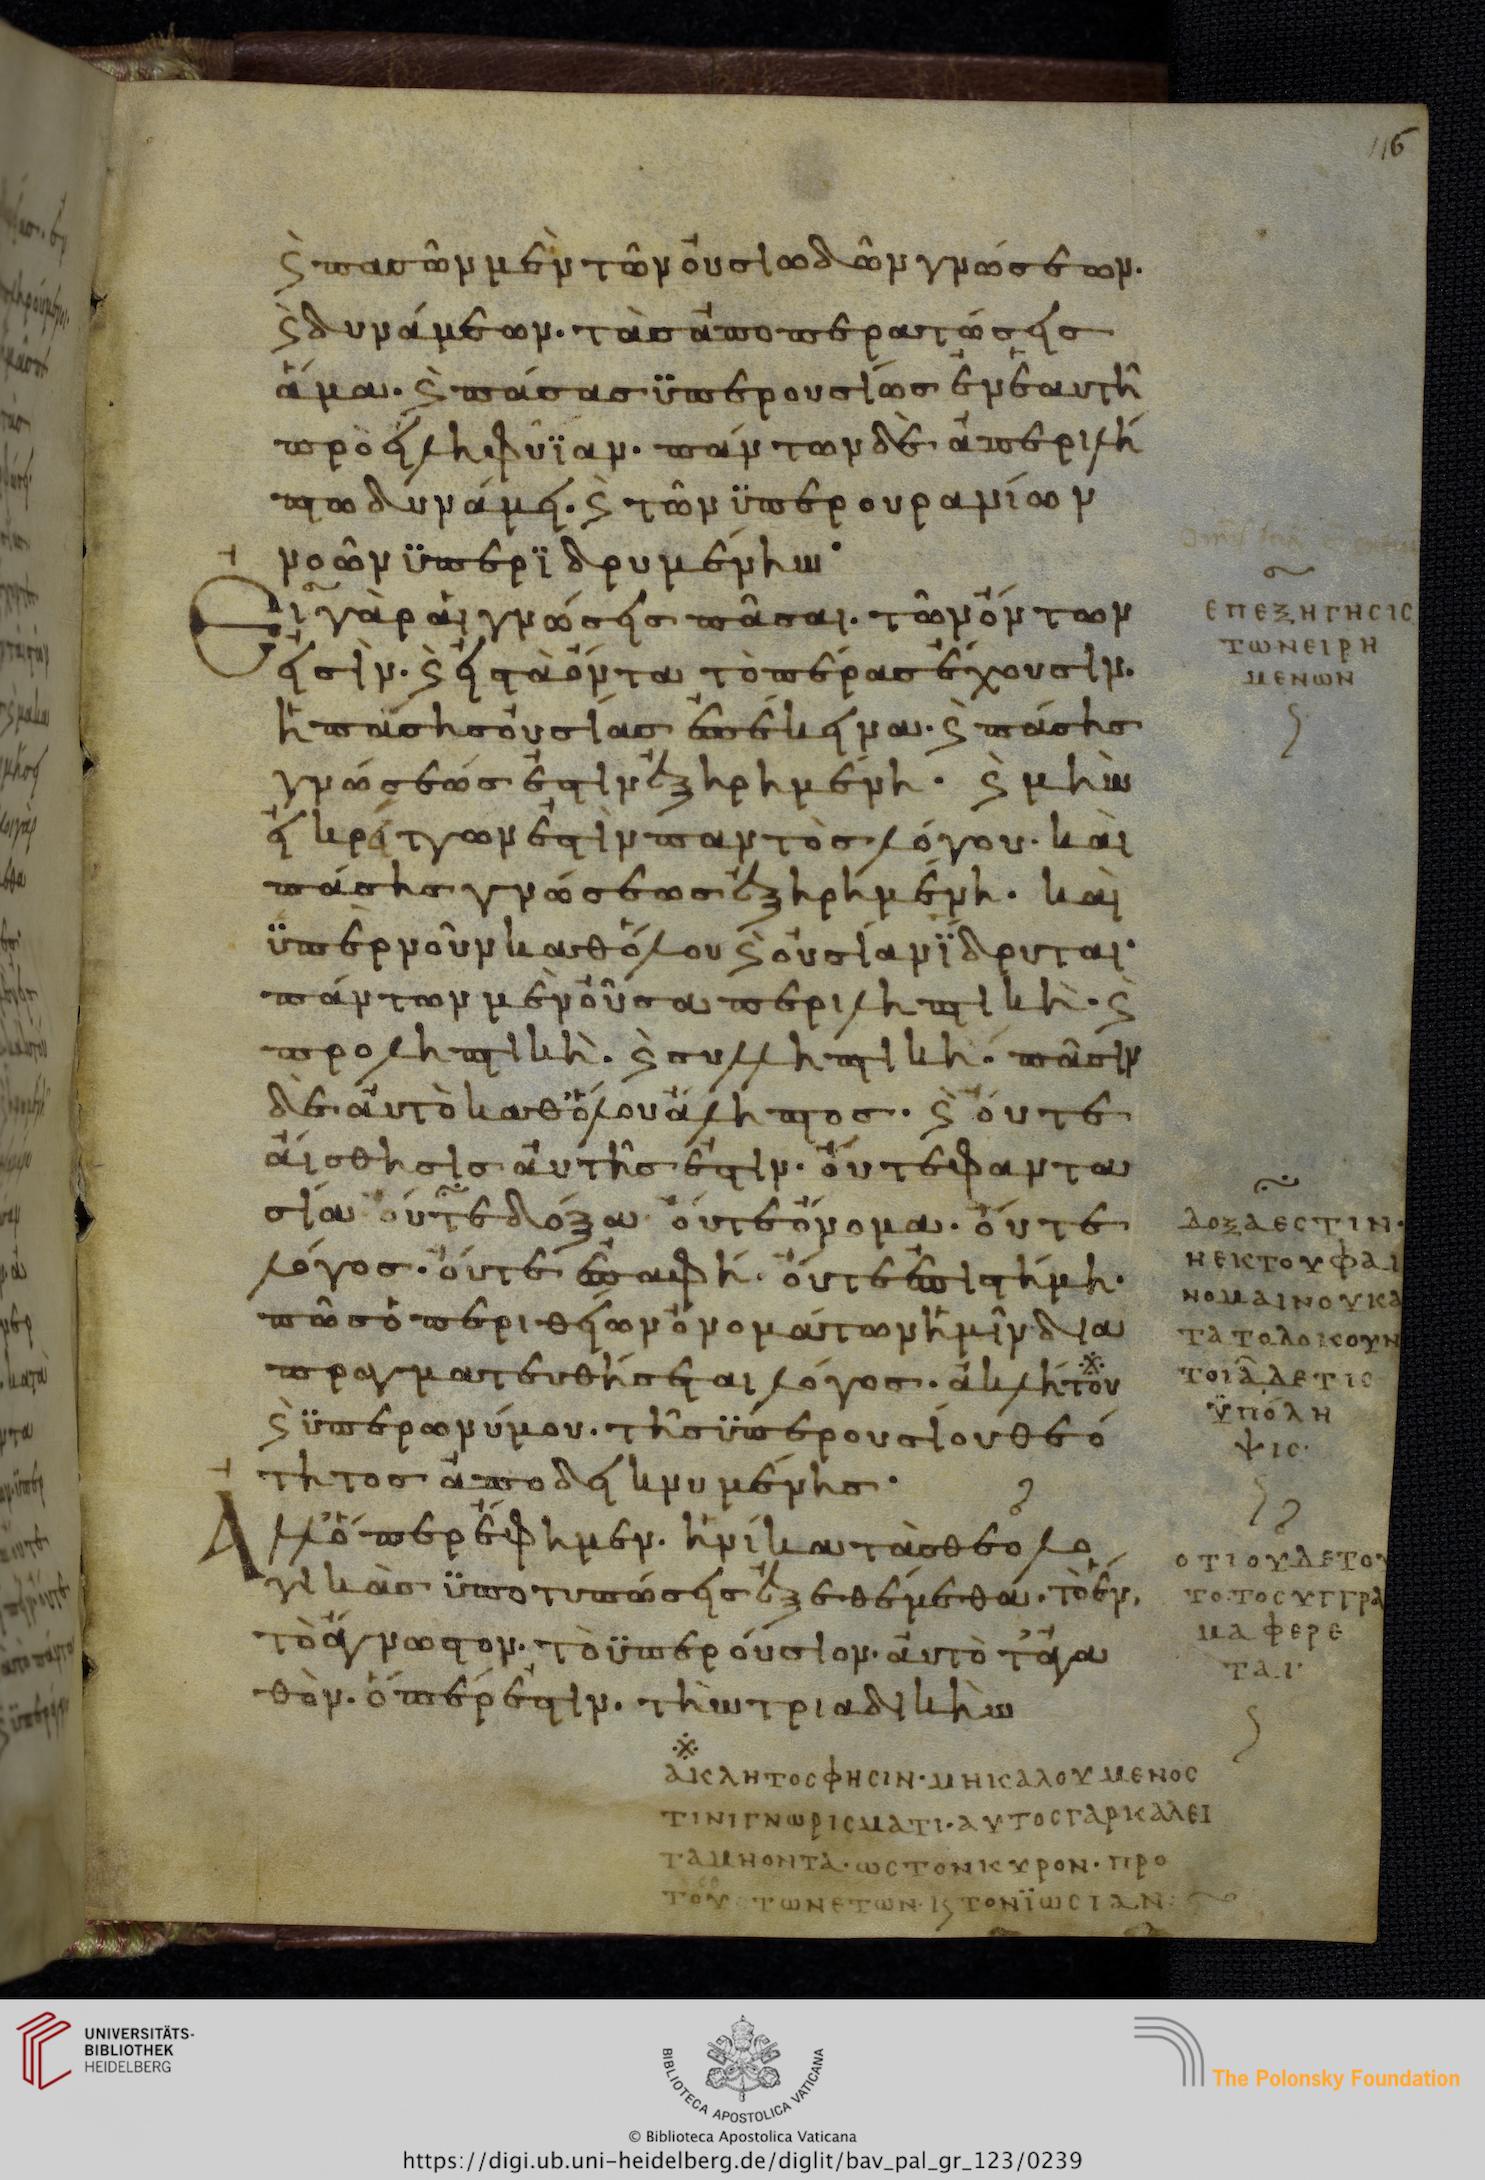 116
ϗ πασῶν μὲν τῶν οὐσιωδῶν γνώσεων·
ϗ δυνάμεων· τὰσ ἀποπερατώσεισ
ἅμα· ϗ πάσασ ὑπερουσίωσ ἐν ἑαυτῆ
προειληφυϊαν· πάντων δὲ ἀπεριλή
πτω δυνάμει· ϗ τῶν ὑπερουρανίων
νοῶν ϋπερϊδρυμένην·
Εἰ γὰρ αἱ γνώσεισ πᾶσαι· τῶν ὄντων
εἰσὶν· ϗ εἰ τὰ ὄντα τὸ πέρασ ἔχουσιν·
ἡ πάσησ οὐσίασ ἐπέκεινα· ϗ πάσησ
γνώσεώσ ἐστιν ἐξηρημένη· ϗ μὴν
εἰ κρείττων ἐστὶν παντὸσ λόγου· καὶ
πάσησ γνώσεωσ ἐξηρημένη· καὶ
ϋπὲρ νοῦν καθόλου ϗ οὐσίαν ϊδρυται·
πάντων μὲν οὖσα περιληπτικὴ· ϗ
προληπτικὴ· ϗ συλληπτικὴ· πᾶσιν
δὲ αὐτὸ καθόλου ἄληπτοσ· ϗ οὔτε
αἴσθησισ αὐτῆσ ἐστιν· οὔτε φαντα
σία οὔτε δόξα οὔτε ὄνομα· οὔτε
λόγοσ· οὔτε ἐπαφή· οὔτε ἐπιστήμη·
πῶσ ὁ περι θείων ὀνομάτων ἡμῖν δια
πραγματευθήσεται λόγοσ· ἀκλήτου
ϗ ϋπερωνύμου· τῆσ ϋπερουσίου θεό
τητοσ ἀποδεικνυμένησ·
Αλλ' ὅπερ ἔφημεν· ἡνίκα τὰσ θεολο
γικὰσ ϋποτυπώσεισ ἐξεθέμεθα· τὸ ἕν,
τὸ ἄγνωστον· τὸ ϋπερούσιον· αὐτὸ τἀγα
θὸν· ὅπέρ ἐστιν· τὴν τριαδικὴν
ΕΠΕΞΗΓΗCΙC
ΤΩΝ ΕΙΡΗ
ΜΕΝΩΝ
ΔΟΞΑ ΕCΤΙΝ·
Η ΕΚ ΤΟΥ ΦΑΙ
ΝΟΜΑΙΝΟΥ ΚΑ
ΤΑ ΤΟ ΔΟΚΟΥΝ
ΤΟΙΑΔΕ ΤΙC
ΫΠΟΛΗ
ΨΙC·
ΟΤΙ ΟΥΔΕ ΤΟΥ
ΤΟ ΤΟ CΥΓΓΡΑ
ΜΑ ΦΕΡΕ
ΤΑΙ·
ΑΚΛΗΤΟC ΦΗCΙΝ· ΜΗ ΚΑΛΟΥΜΕΝΟC
ΤΙΝΙ ΓΝΩΡΙCΜΑΤΙ· ΑΥΤΟC ΓΑΡ ΚΑΛΕΙ
ΤΑ ΜΗ ΟΝΤΑ· ΩC ΤΟΝ ΚΥΡΟΝ· ΠΡΟ
ΤΟCΟΥΤΩΝ ΕΤΩΝ· Κ ΤΟΝ ΪΩCΙΑΝ
UNIVERSITÄTS-
BIBLIOTHEK
HEIDELBERG
BIBLIOTECA APOSTOLICA VATICANA
The Polonsky Foundation
© Biblioteca Apostolica Vaticana
https://digi.ub.uni-heidelberg.de/diglit/bav_pal_gr_123/0239